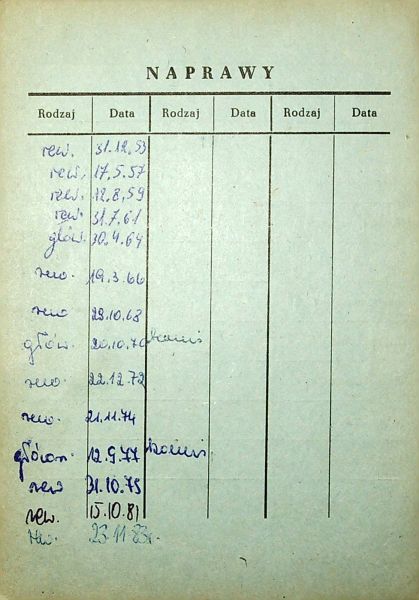 NAPRAWY
Rodzaj Data Rodzaj Data Rodzaj Data
rew. 31.12.53
rew. 17.5.57
rew. 12.8.59
rew. 31.7.61
głów. 30.4.64
rew. 19.3.66
rew 29.10.68
głów. 20.10.70
rew. 22.12.72
rew. 21.11.74
główn. 12.9.77
rew 31.10.79
rew. 15.10.81
rew. 23.11.83r.